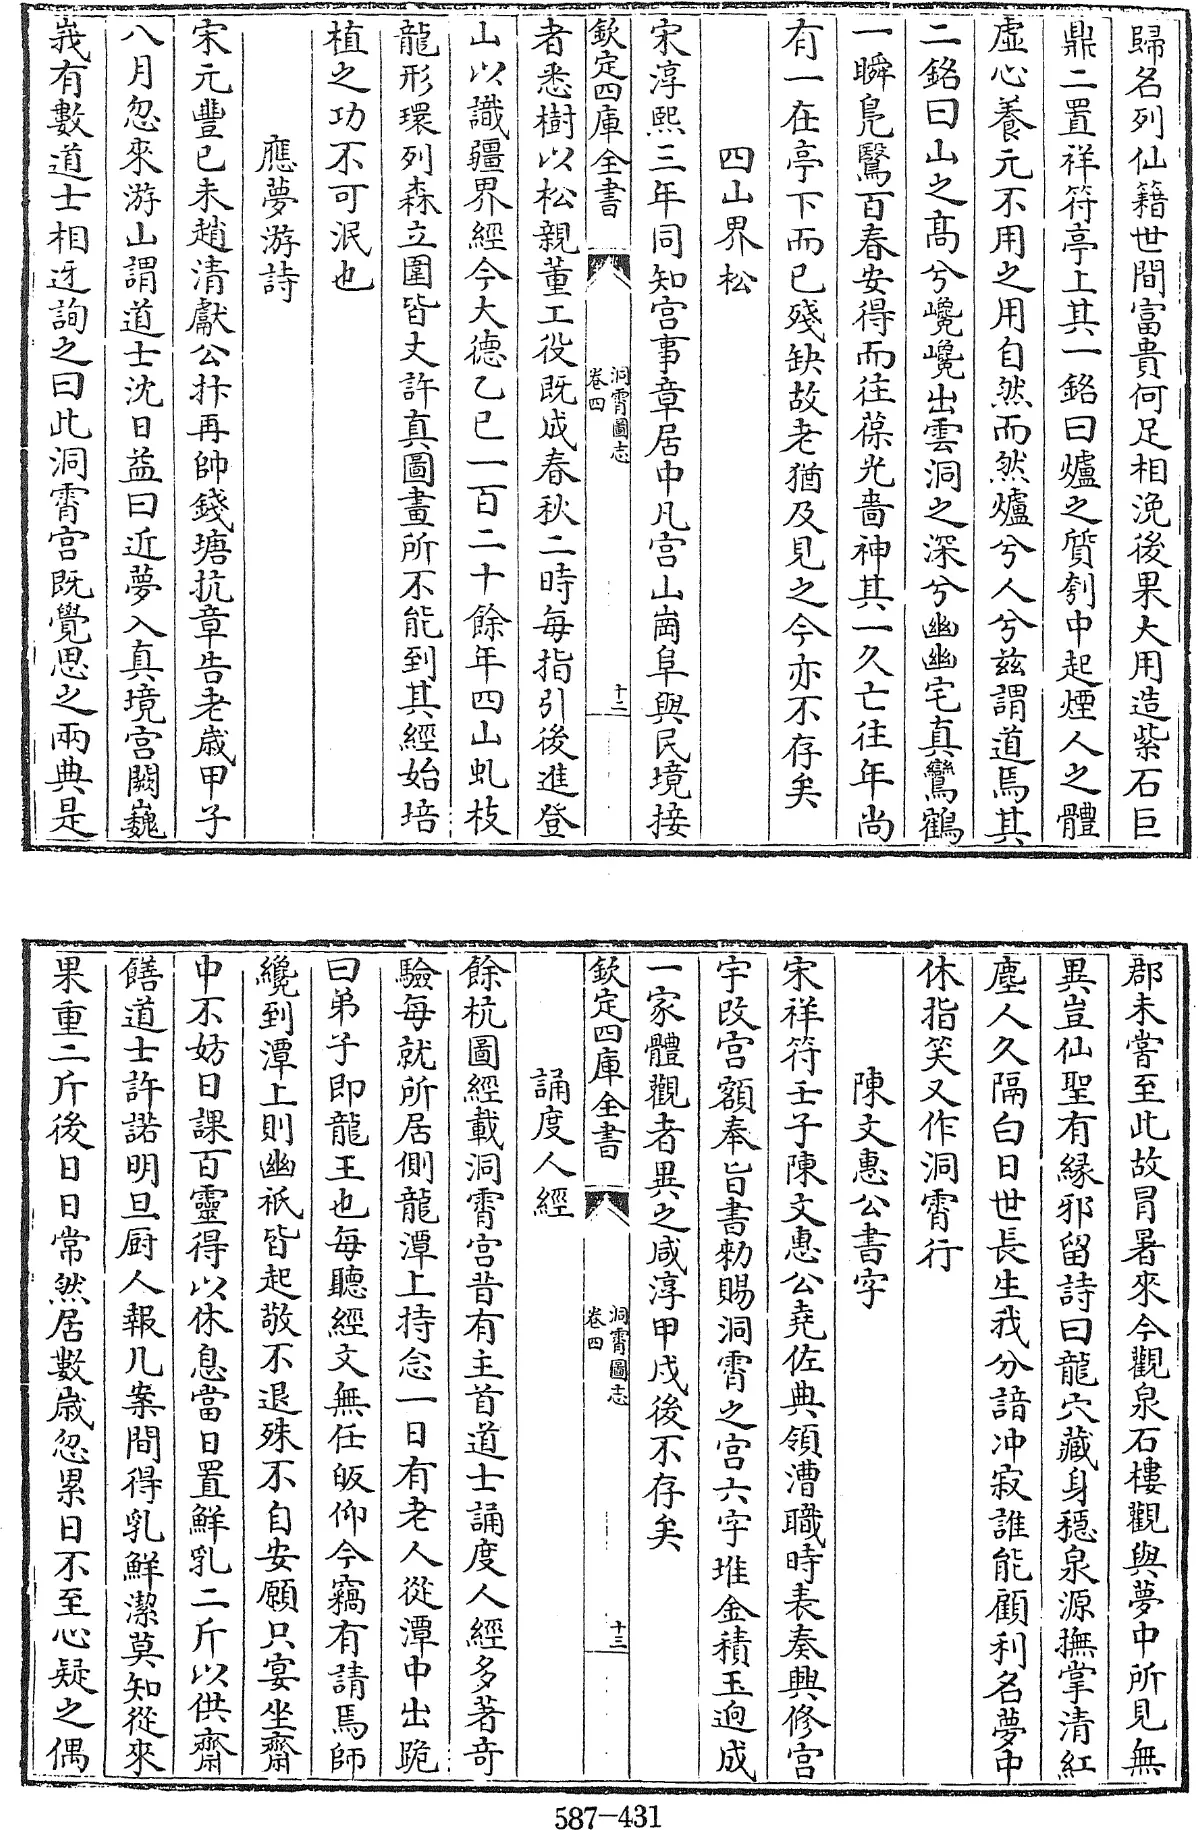 歸名列仙籍世間富貴何足相浼後果大用造紫石巨
鼎二置祥符亭上其一銘曰爐之質刳中起煙人之體
虛心養元不用之用自然而然爐兮人兮兹謂道焉其
二銘曰山之髙兮巉巉出雲洞之深兮幽幽宅真鸞鶴
一瞬鳧鷖百春安得而往葆光嗇神其一久亡往年尚
有一在亭下而已殘缺故老猶及見之今亦不存矣
四山界松
宋淳熙三年同知宫事章居中凡宫山崗阜與民境接
欽定四庫全書
洞霄圖志
卷四
十二
者悉樹以松親董工役既成春秋二時每指引後進登
山以識疆界經今大德乙巳一百二十餘年四山虬枝
龍形環列森立圍皆丈許真圖畫所不能到其經始培
植之功不可泯也
應夢游詩
宋元豐已未趙清獻公抃再帥錢塘抗章告老歲甲子
八月忽來游山謂道士沈日益曰近夢入真境宫闕巍
峩有數道士相迓詢之曰此洞霄宫既覺思之兩典是
郡未嘗至此故冒暑來今觀泉石樓觀與夢中所見無
異豈仙聖有緣邪留詩曰龍穴藏身穩泉源撫掌清紅
塵人久隔白日世長生我分諳冲寂誰能顧利名夢中
休指笑又作洞霄行
陳文惠公書字
宋祥符壬子陳文惠公堯佐典領漕職時表奏興修宫
宇改宫額奉旨書勅賜洞霄之宫六字堆金積玉逈成
一家體觀者異之咸淳甲戌後不存矣
欽定四庫全書
洞霄圖志
卷四
十三
誦度人經
餘杭圖經載洞霄宫昔有主首道士誦度人經多著奇
驗每就所居側龍潭上持念一日有老人從潭中出跪
曰弟子即龍王也每聽經文無任皈仰今竊有請焉師
纔到潭上則幽祇皆起敬不退殊不自安願只宴坐齋
中不妨日課百靈得以休息當日置鮮乳二斤以供齋
饍道士許諾明旦厨人報几案間得乳鮮潔莫知從來
果重二斤後日日常然居數歲忽累日不至心疑之偶
587-431